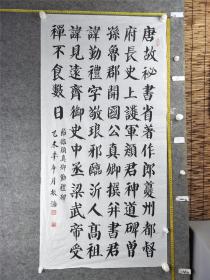 唐故秘書省著作郎夔州都督
府長史上護軍顏君神道碑曾
孫魯郡開國公真卿撰并書君
諱勤禮字敬琅邪臨沂人高祖
諱見遠齊御史中丞梁武帝受
禪不食數日
臨顏真卿勤禮碑
乙未年月